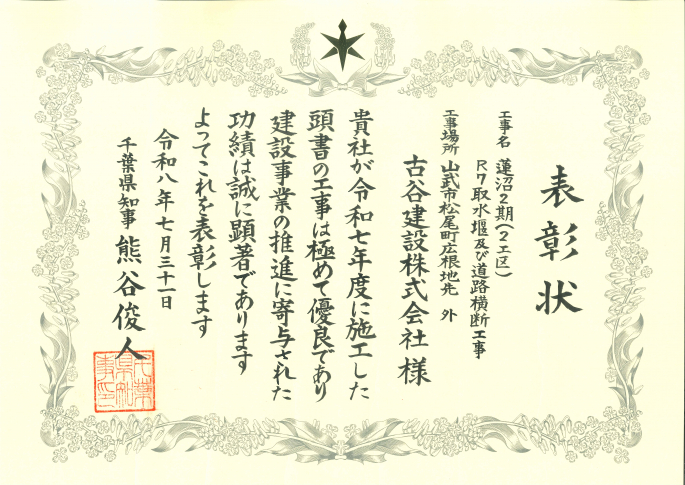 表彰状
工事名 蓮沼2期(2工区)
R7取水堰及び道路横断工事
工事場所 山武市松尾町広根地先 外
古谷建設株式会社 様
貴社が令和七年度に施工した
頭書の工事は極めて優良であり
建設事業の推進に寄与された
功績は誠に顕著であります
よってこれを表彰します
令和八年七月三十一日
千葉県知事 熊谷俊人